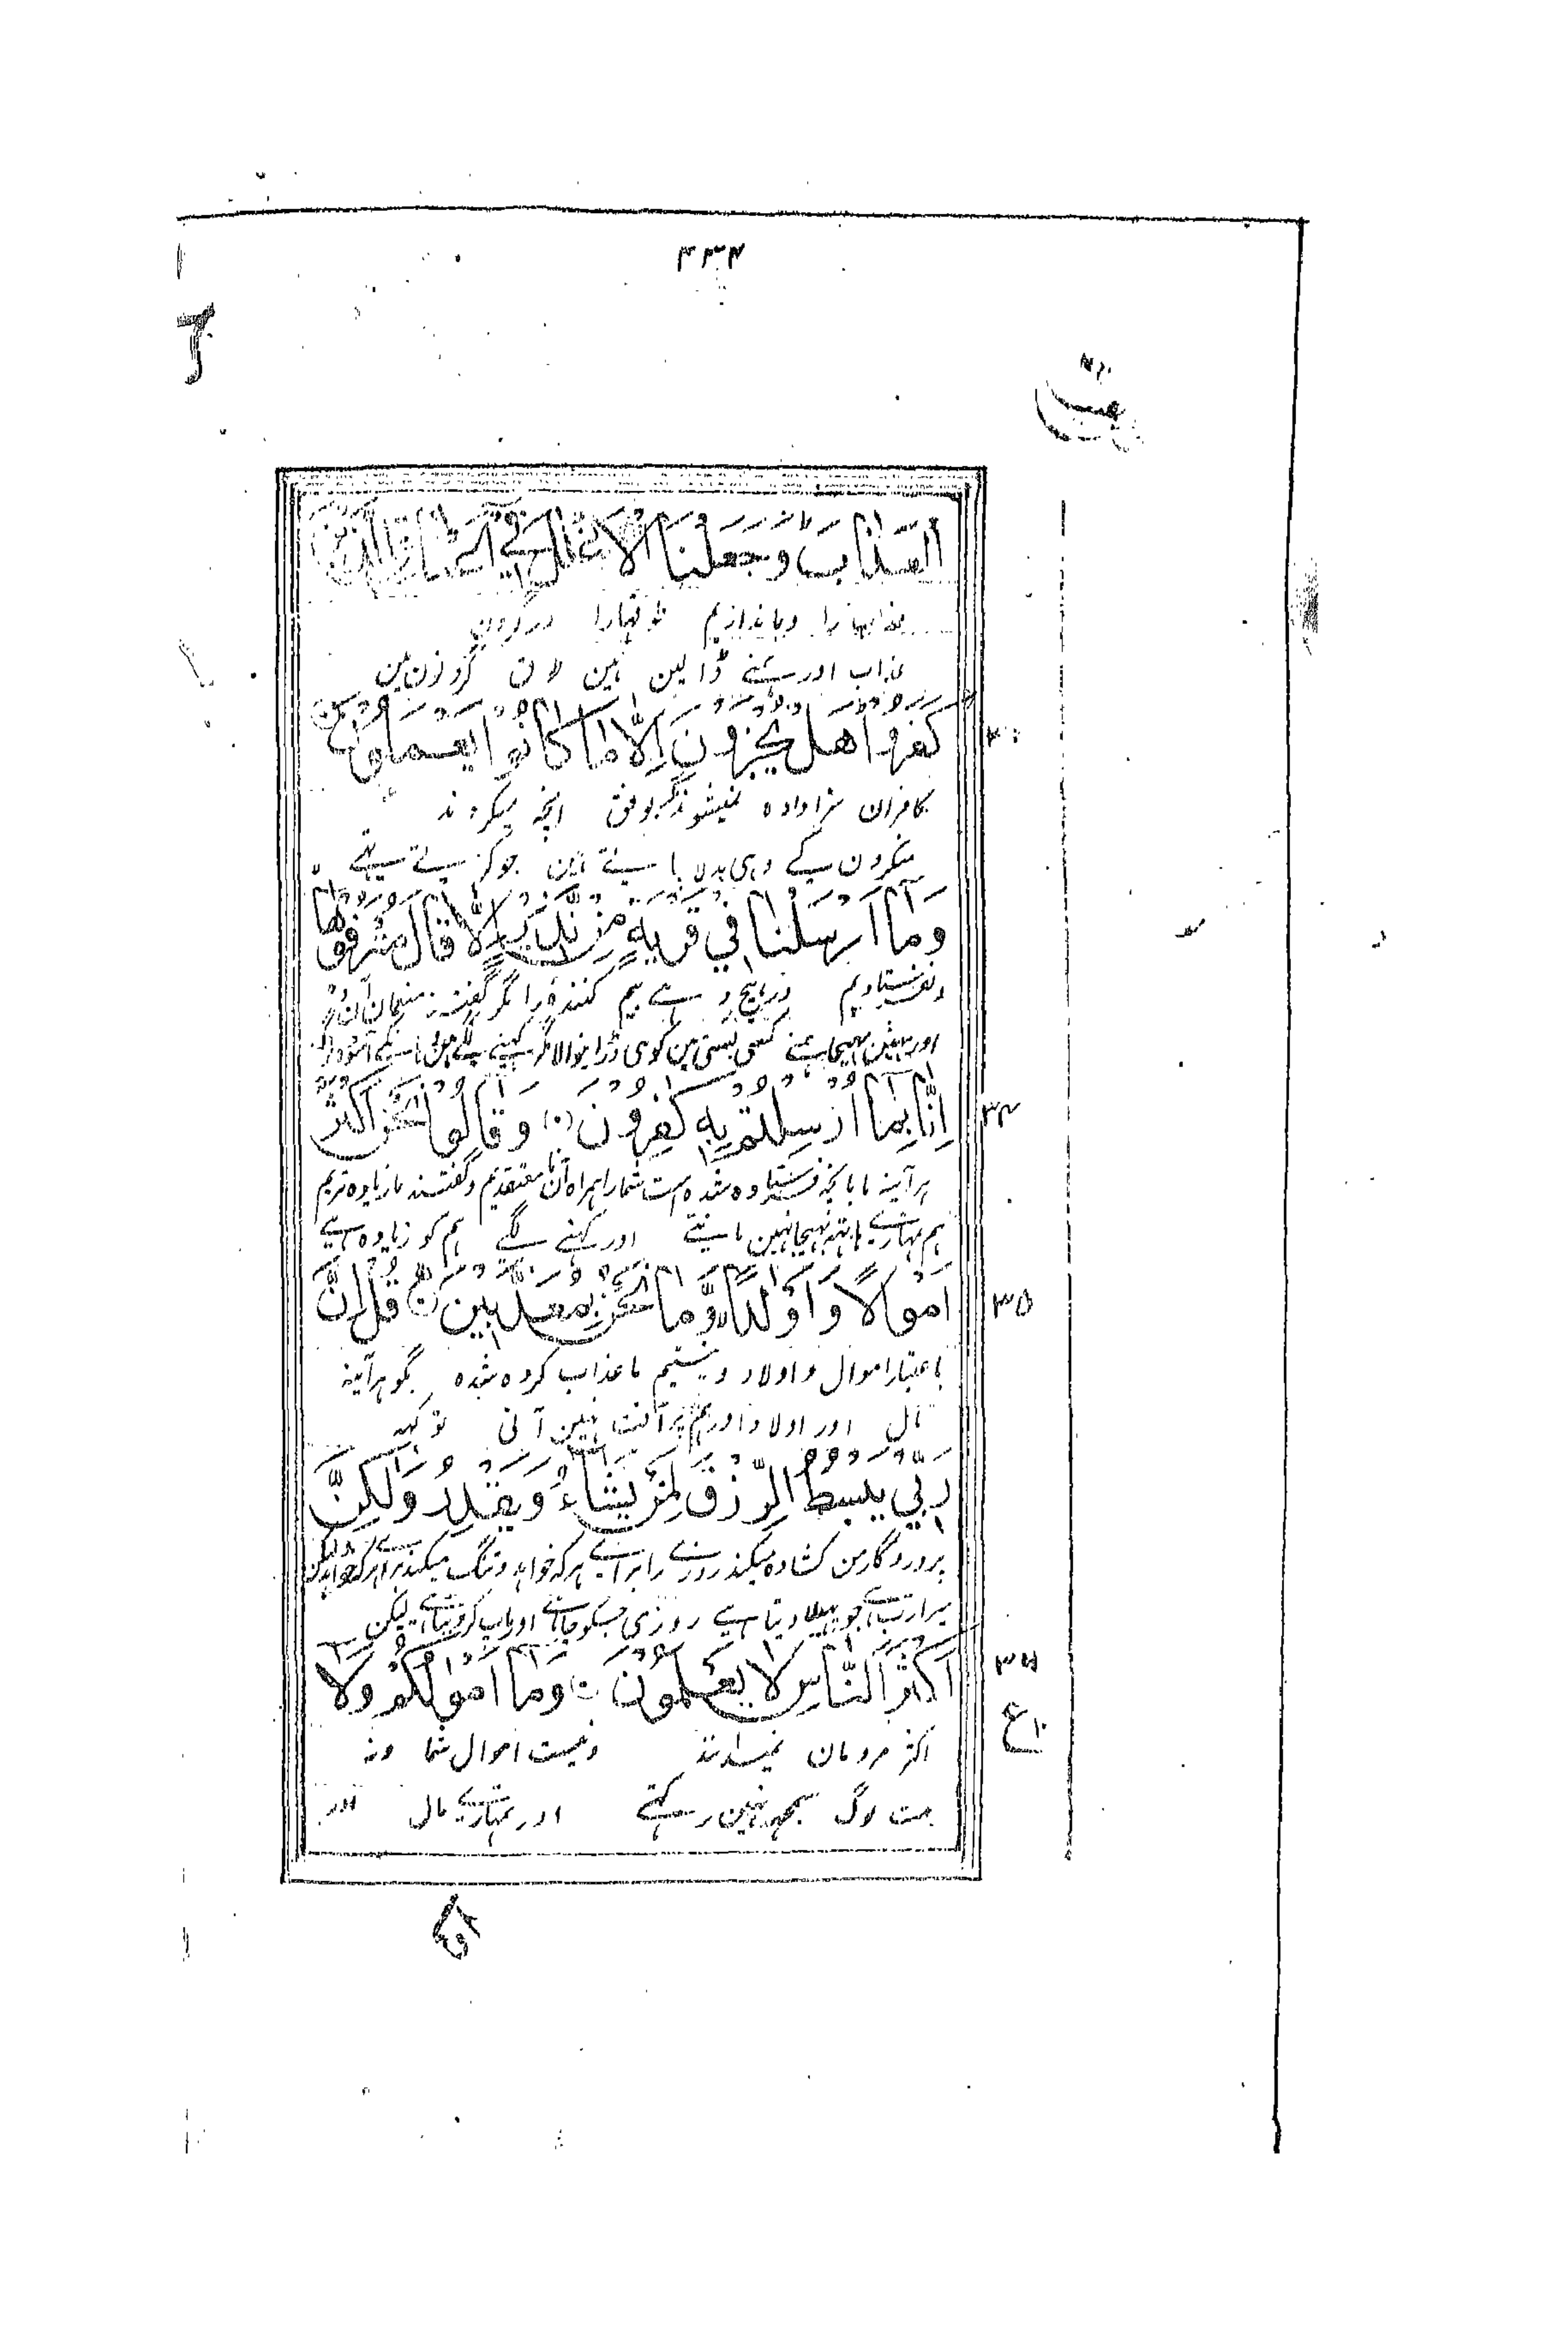 ۴۳۴
الْعَذَابَ وَجَعَلْنَا الْاَغْلٰلَ فِيْ اَعْنَاقِ الَّذِيْنَ
عذابها را وباندازیم طوقها را در گردن
عذاب اور ہمنے ڈالین ہین طوق گردنون مین
كَفَرُوْا هَلْ يُجْزَوْنَ اِلَّا مَا كَانُوْا يَعْمَلُوْنَ
کافران سزا داده نمیشوند مگر بوفق آنچه میکردند
منکرون کے وہی بدلا پاتے ہین جو کرتے تہے
وَمَآ اَرْسَلْنَا فِيْ قَرْيَةٍ مِّنْ نَّذِيْرٍ اِلَّا قَالَ مُتْرَفُوْهَآ
ونفرستادیم در هیچ دہے بیم کننده را مگر گفتند منعمان آن
اور نہین بہیجا ہمنے کسی بستی مین کوئی ڈرانیوالا مگر کہنے لگے ہین اسکے آسودہ لوگ
اِنَّا بِمَآ اُرْسِلْتُمْ بِهٖ كٰفِرُوْنَ وَقَالُوْا نَحْنُ اَكْثَرُ
۳۴
ہر آینہ ما بآنچہ فرستاده شده است شما را ہمراه آن نا معتقدیم وگفتند ما زیاده تریم
ہم تمہارے ہاتہہ بہیجا نہین مانتے اور کہنے لگے ہم کو زیادہ ہے
اَمْوَالًا وَّاَوْلَادًا وَّمَا نَحْنُ بِمُعَذَّبِيْنَ قُلْ اِنَّ
۳۵
باعتبار اموال و اولاد و نیستیم ما عذاب کرده شده بگو ہر آینہ
مال اور اولاد اور ہم پر آفت نہین آنی تو کہہ
رَبِّيْ يَبْسُطُ الرِّزْقَ لِمَنْ يَّشَآءُ وَيَقْدِرُ وَلٰكِنَّ
پروردگار من کشاده میکند روزے را برائے ہر کہ خواہد و تنگ میکند برائے ہر کہ خواہد ولیکن
میرا رب ہے جو پہیلا دیتا ہے روزی جسکو چاہے اور ماپ کر دیتا ہے لیکن
اَكْثَرَ النَّاسِ لَا يَعْلَمُوْنَ وَمَآ اَمْوَالُكُمْ وَلَآ
۳۶
ع
اکثر مردمان نمیدانند ونیست اموال شما ونہ
بہت لوگ سمجہہ نہین رکہتے اور تمہارے مال اور